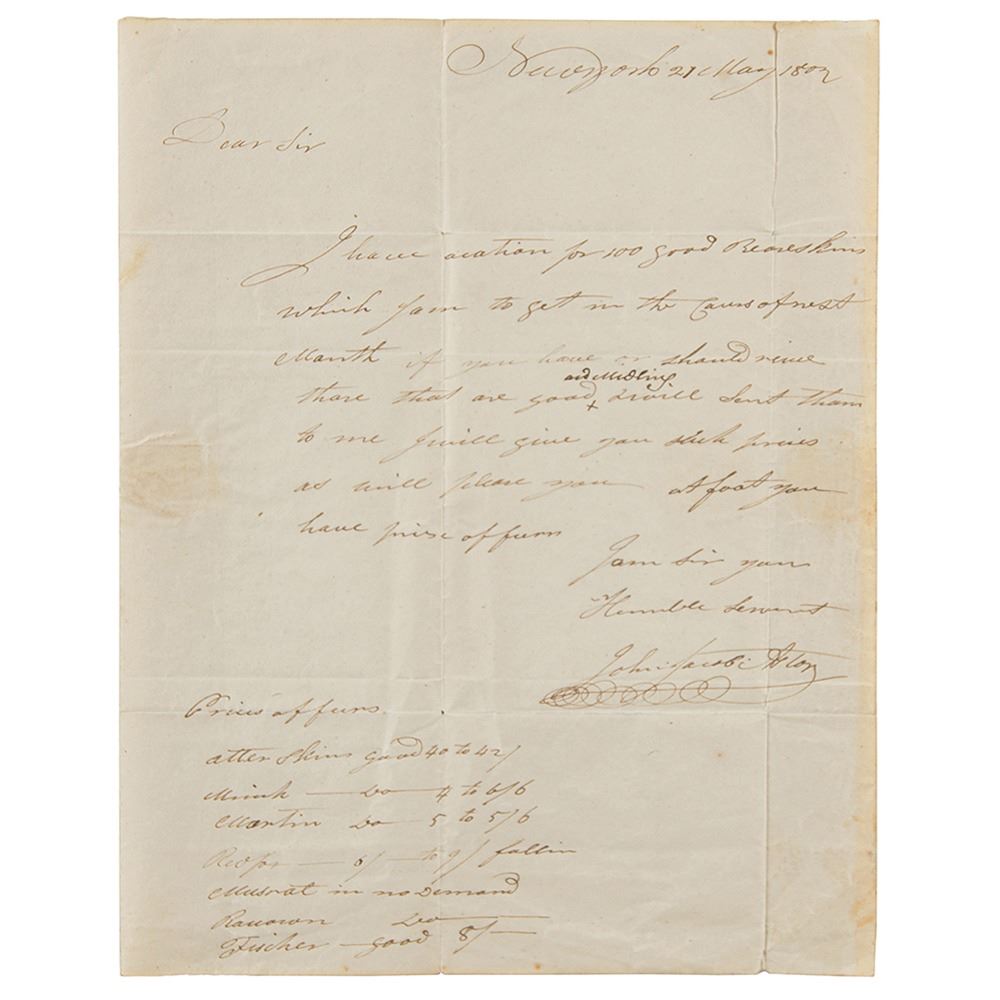 New york 21 May 1802
Dear Sir
I have acation for 100 good Beareskins
which I am to get in the Caurs of next
Manth if you have or should reive
thare that are good & will sent tham
and Midling
to me I will give you such prices
as will please you at foot you
have prise of furrs
I am Sir your
Humble Servent
John Jacob Astor
Prices of furrs
atter Skins good 40 to 42/
Minck — Do — 4 to 6/6
Martin Do — 5 to 5/6
— 6/ — to 9/ fallin
Musrat in no Demand
Racuown Do —
Fischer — good 8/—